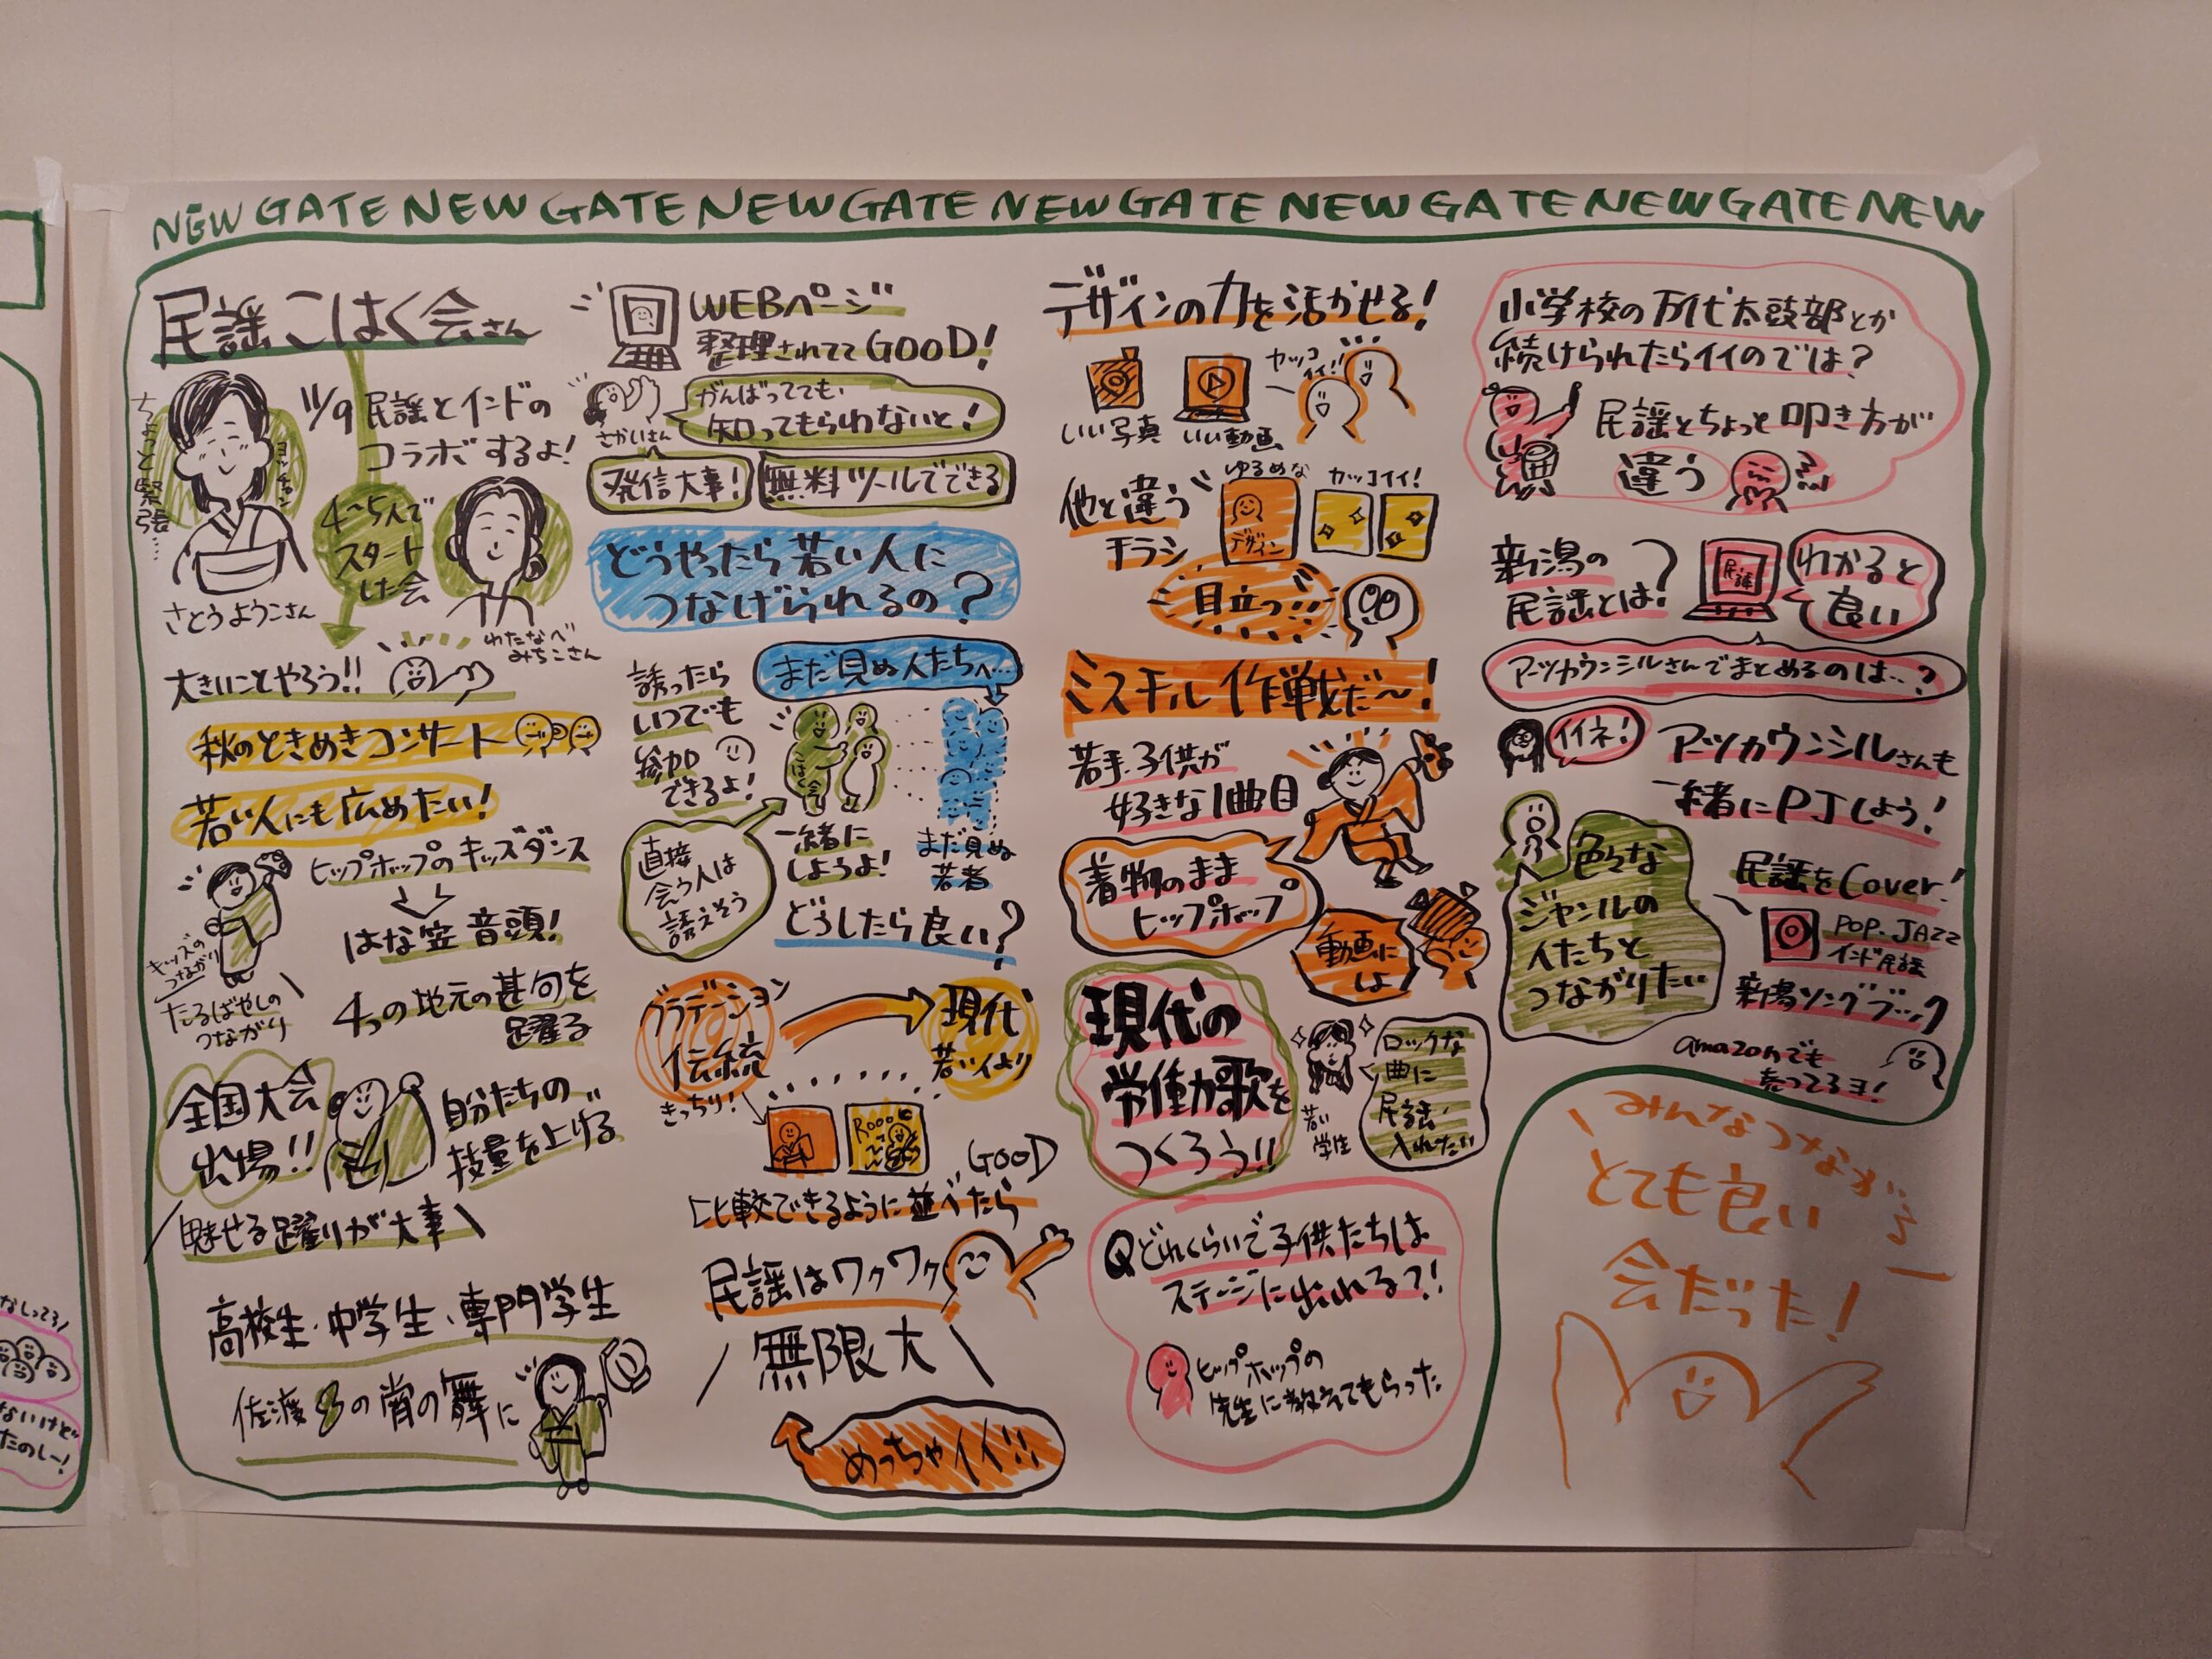 NEW GATE NEW GATE NEW GATE NEW GATE NEW GATE NEW GATE NEW
民謡こはく会さん
ちょっと緊張…
11/9 民謡とインドの
コラボするよ!
さとうようこさん
4~5人で
スタート
した会
わたなべ
みちこさん
大きいことやろう!!
秋のときめきコンサート
若い人にも広めたい!
ヒップホップのキッズダンス
はな笠音頭!
キッズの
つながり
たるばやしの
つながり
4つの地元の甚句を
踊る
全国大会
出場!!
自分たちの
技量を上げる
魅せる踊りが大事
高校生・中学生・専門学生
の宵の舞に
WEBページ
整理されててGOOD!
さかいさん
がんばってても、
知ってもらわないと!
発信大事!
無料ツールでできる
どうやったら若い人に
つなげられるの?
誘ったら
いつでも
参加
できるよ!
まだ見ぬ人たちへ…
こはく会
直接
会う人は
誘えそう
一緒に
しようよ!
まだ見ぬ
若者
どうしたら良い?
グラデーション
伝統
きっちり!
現代
若い人より
GOOD
比較できるように並べたら
民謡はワクワク
無限大
めっちゃイイ!!
デザインの力を活かせる!
いい写真
いい動画
カッコ
イイ!!
他と違う
チラシ
ゆるめな
デザイン
カッコイイ!
目立つ!!
ミスチル作戦だ~!
若手、子供が
好きな1曲目
着物のまま
ヒップホップ
動画に
は
現代の
労働歌を
つくろう!!
若い
学生
ロックな
曲に
民謡
入れたい
Qどれくらいで子供たちは
ステージに出れる?!
ヒップホップの
先生に教えてもらった
小学校の万代太鼓部とか
続けられたらイイのでは?
民謡とちょっと叩き方が
違う
新潟の
民謡とは?
民謡
わかると
良い
アーツカウンシルさんでまとめるのは…?
イイネ!
アーツカウンシルさんも
一緒にPJしよう!
色々な
ジャンルの
人たちと
つながりたい
民謡をCover!
POP.JAZZ
インド民謡
新潟ソングブック
amazonでも
売ってるヨ!
みんなつながる
とても良い
会だった!